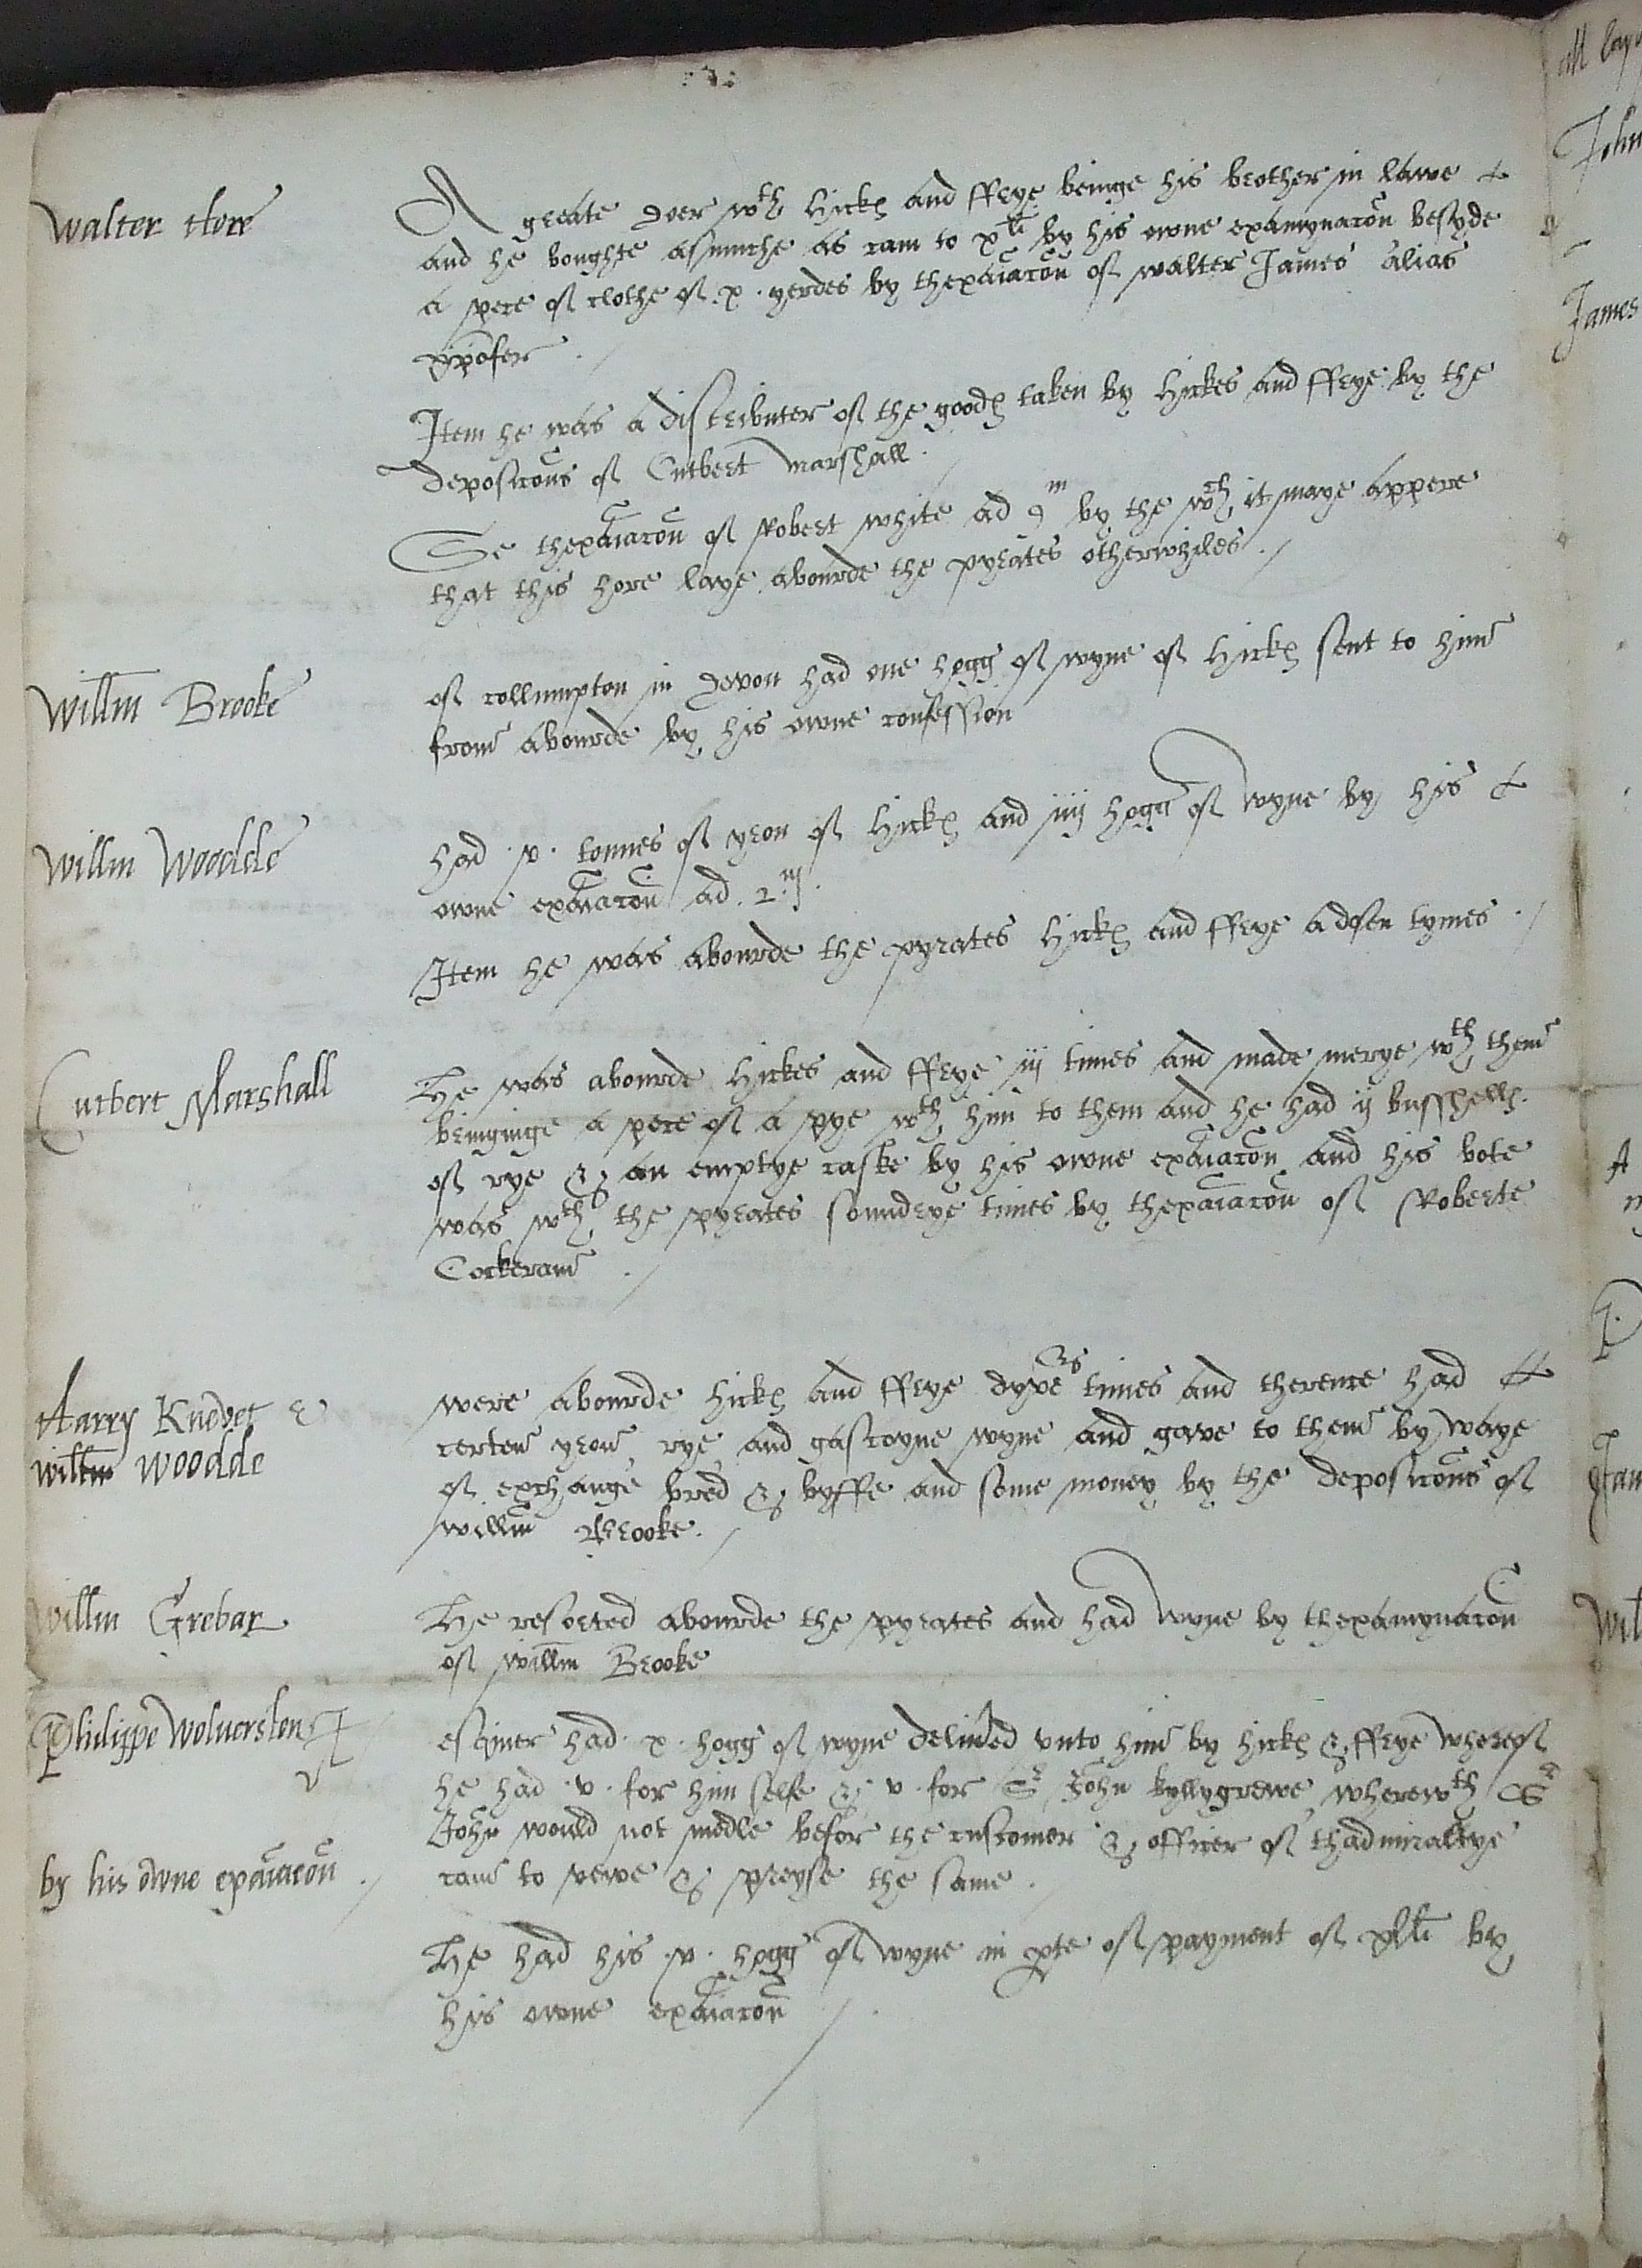 Walter Hore
A greate doer wth Hickes and ffrye beinge his brother in lawe
and he boughte asmuche as cam to xli by his owne examynacon besyde
a pece of clothe of .x. yerdes by thexaiacon of walter James alias
Item he was a distributer of the goodes taken by Hickes and ffrye by the
deposicons of Cutbert Marshall.
Se thexaiacon of Robert white ad 9m by the wch it maye appere
that this hore laye abourde the pyrates otherwhiles./
Willm Brooke
of collumpton in devon had one hogg of wyne of Hickes sent to him
from abourde by his owne confession
Willm Woodde
had .v. tonnes of yron of Hickes and iiij hogg of wyne by his
owne exaiacon ad .2m.
Item he was abourde the pyrates Hickes and ffrye a dosen tymes ./
Cutbert Marshall
He was abourde Hickes and ffrye iij times and made merye wth them
bringinge a pece of a pye wth him to them and he had ij busshells
of rye & an emptye caske by his owne exaiacon and his bote
was wth the pyrates soundrye times by thexaiacon of Roberte
Cockeram ./
Harry Knevet &
willm Woodde
were abourde hickes and ffrye dyvers times and therence had
certen yron rye and gascoyne wyne and gave to them by waye
of exchange bred & byffe and some money by the deposicons of
willm Brooke./
Willm Grebar
He resorted abourde the pyrates and had wyne by thexamynacon
of willm Brooke
Philippe Wolverston
esquier had .x. hogg of wyne delived unto him by hickes & ffrye whereof
he had .v. for him selfe & v. for Sr John kyllygrewe wherewth Sr
John would not medle befor the customer & officer of thadmiraltye
by his owne exaiacon ./
cam to vewe & preyse the same.
He had his .v. hogg of wyne in pte of payment of xlli by
his owne exaiacon ./